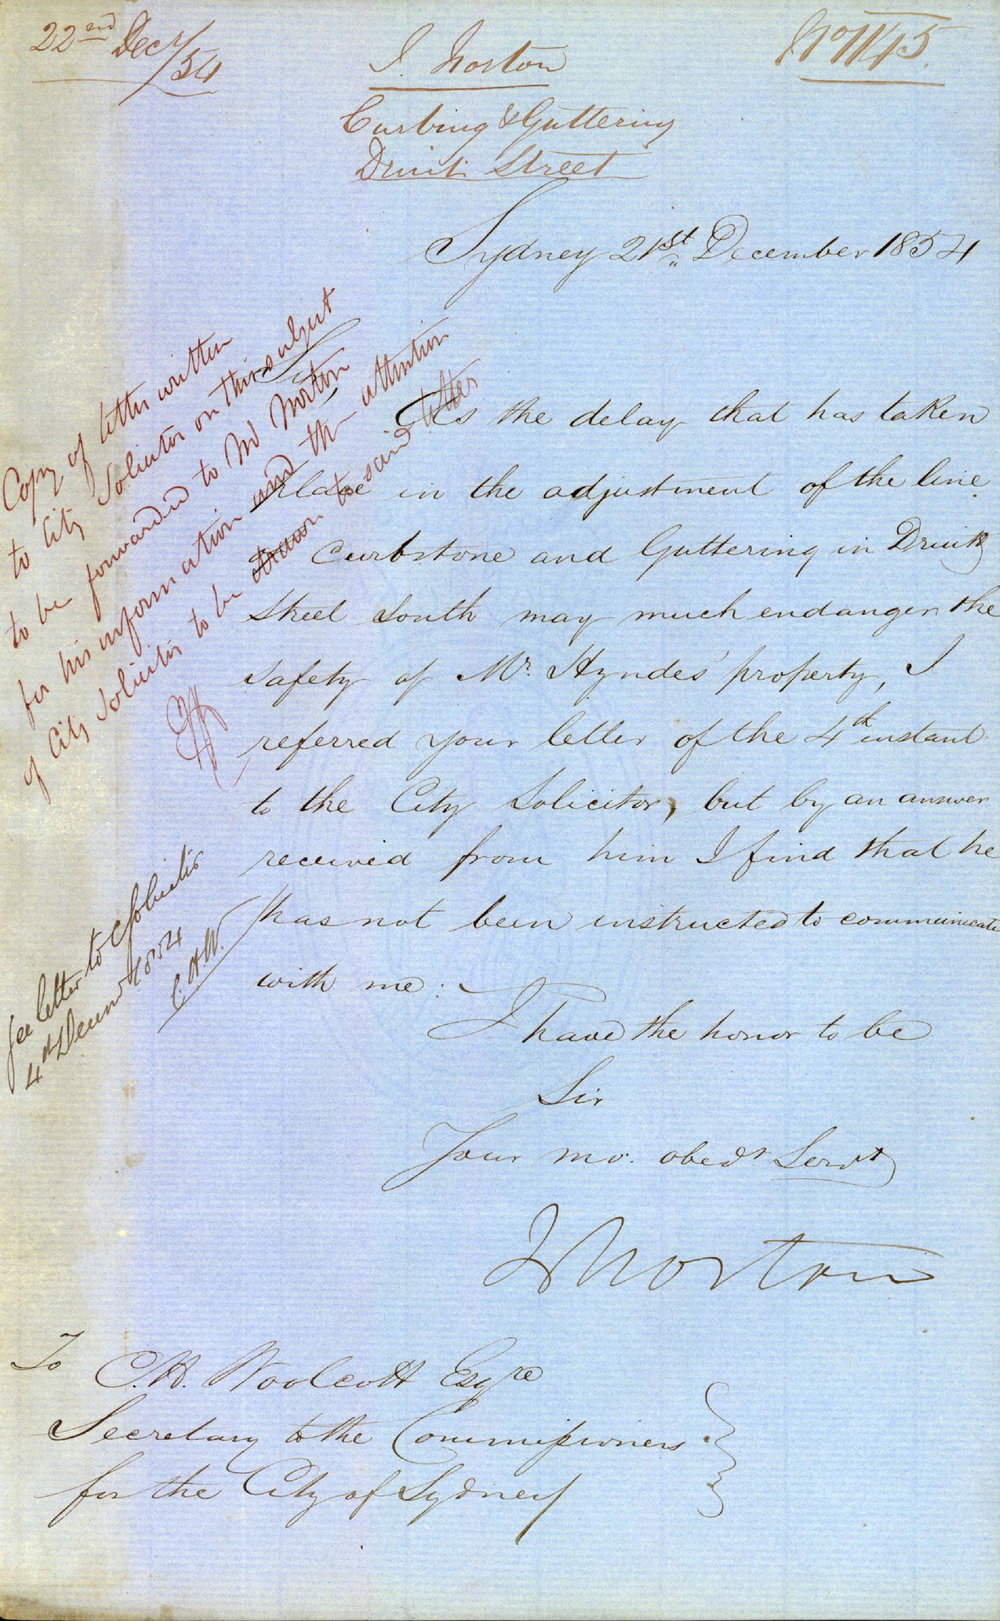 22nd Decr/54
J. Norton
No 1145.
Curbing & Guttering
Druitt Street
Sydney 21st December 1854
Sir,
As the delay that has taken
place in the adjustment of the line
of Curbstone and Guttering in Druitt
Street South may much endanger the
safety of Mr. Hyndes' property, I
referred your letter of the 4th instant
to the City Solicitor, but by an answer
received from him I find that he
has not been instructed to communicate
with me.
I have the honor to be
Sir
Your mo. obedt Servt
J Norton
To C.H. Woolcott Esqre
Secretary to the Commissioners
for the City of Sydney
Copy of letter written
to City Solicitor on this subject
to be forwarded to Mr Norton
for his information and the attention
of City Solicitor to be drawn to said letter
See letter to C Solicitor
4th Decemr 1854
C.H.W.